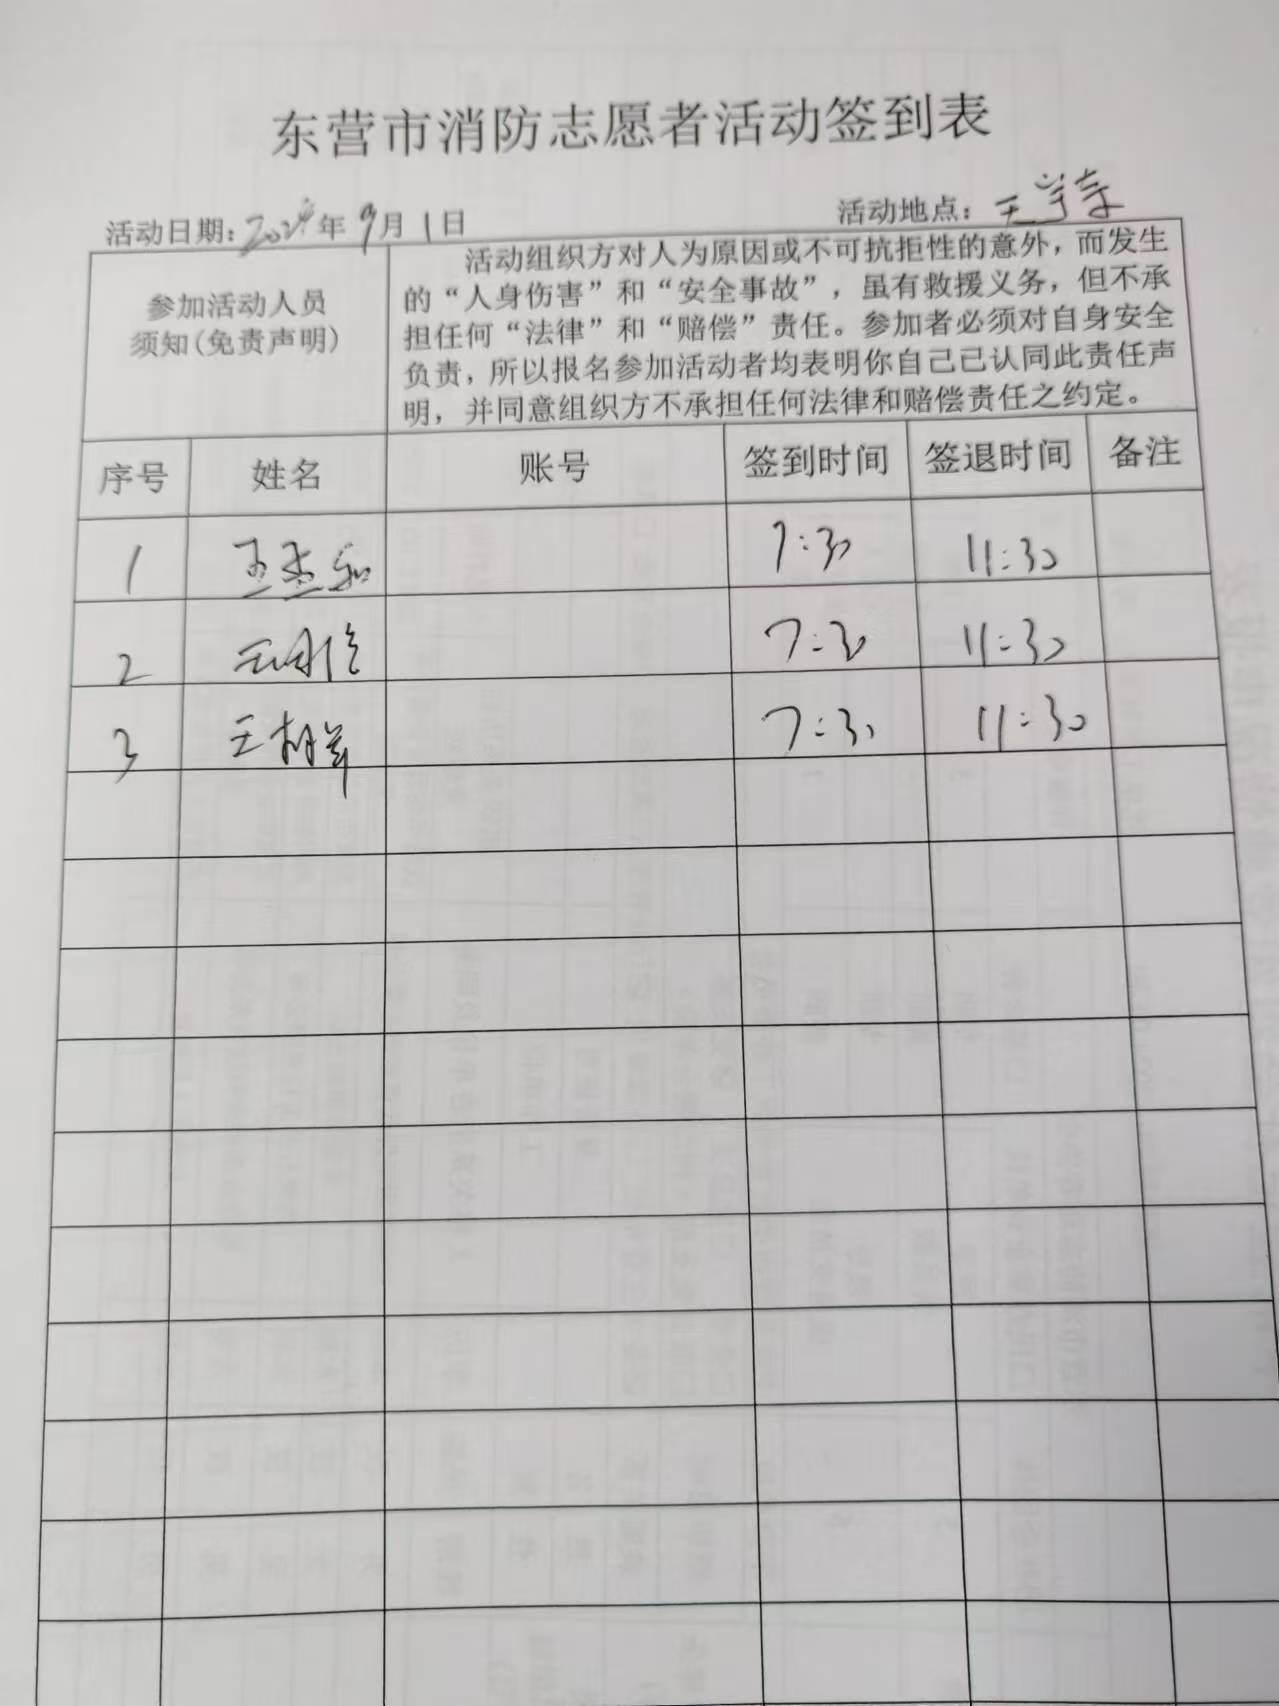 东营市消防志愿者活动签到表
活动日期：2024年9月1日 活动地点：王
参加活动人员
须知(免责声明)
活动组织方对人为原因或不可抗拒性的意外，而发生
的“人身伤害”和“安全事故”，虽有救援义务，但不承
担任何“法律”和“赔偿”责任。参加者必须对自身安全
负责，所以报名参加活动者均表明你自己已认同此责任声
明，并同意组织方不承担任何法律和赔偿责任之约定。
序号 姓名 账号 签到时间 签退时间 备注
1 王 7:30 11:30
2 王 7:30 11:30
3 王 7:30 11:30